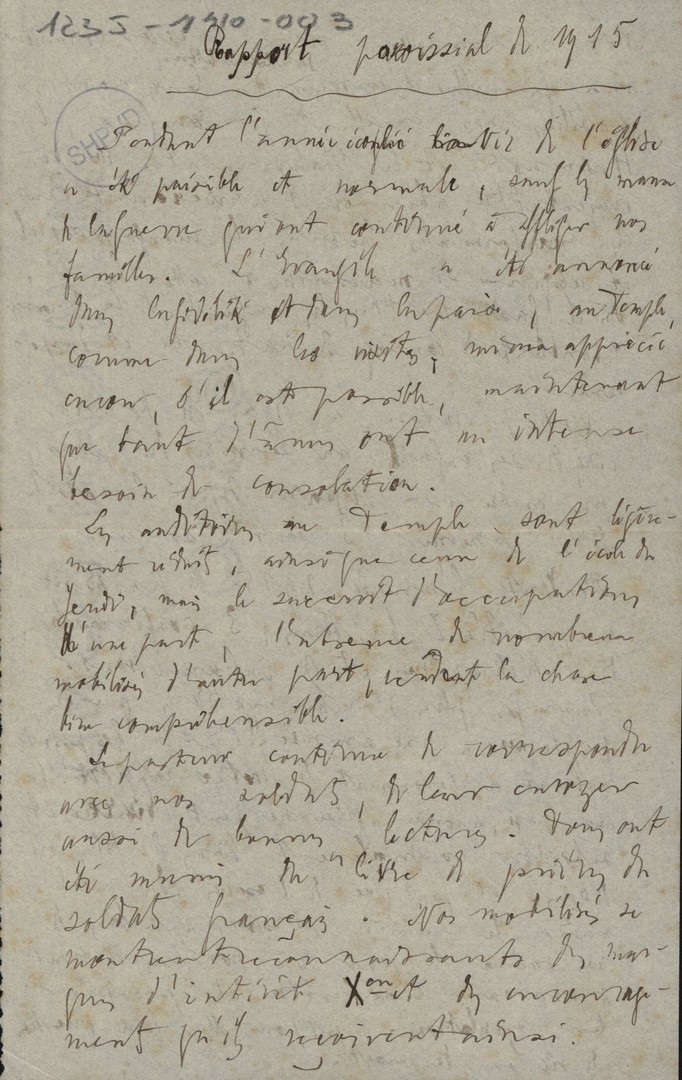 1235-1910-003
Rapport paroissial de 1915
SHPVD
Pendant l'année écoulée la vie de l'église
a été paisible et normale, sauf les maux
de la guerre qui ont continué à affliger nos
familles. L'Evangile a été annoncé
dans la fidélité et dans la paix, au Temple,
comme dans les visites, mieux apprécié
encore, s'il est possible, maintenant
que tant d'âmes ont un intense
besoin de consolation.
Les auditoires au Temple sont légère-
ment réduits, ainsi que ceux de l'école du
Jeudi, mais le surcroît d'occupations
d'une part, l'absence de nombreux
mobilisés d'autre part, rendent la chose
bien compréhensible.
Le pasteur continue de correspondre
avec nos soldats, de leur envoyer
aussi de bonnes lectures. Tous ont
été munis du "livre de prières du
soldat français. Nos mobilisés se
montrent reconnaissants des mar-
ques d'intérêt Xen et des encourage-
ments qu'ils reçoivent ainsi.